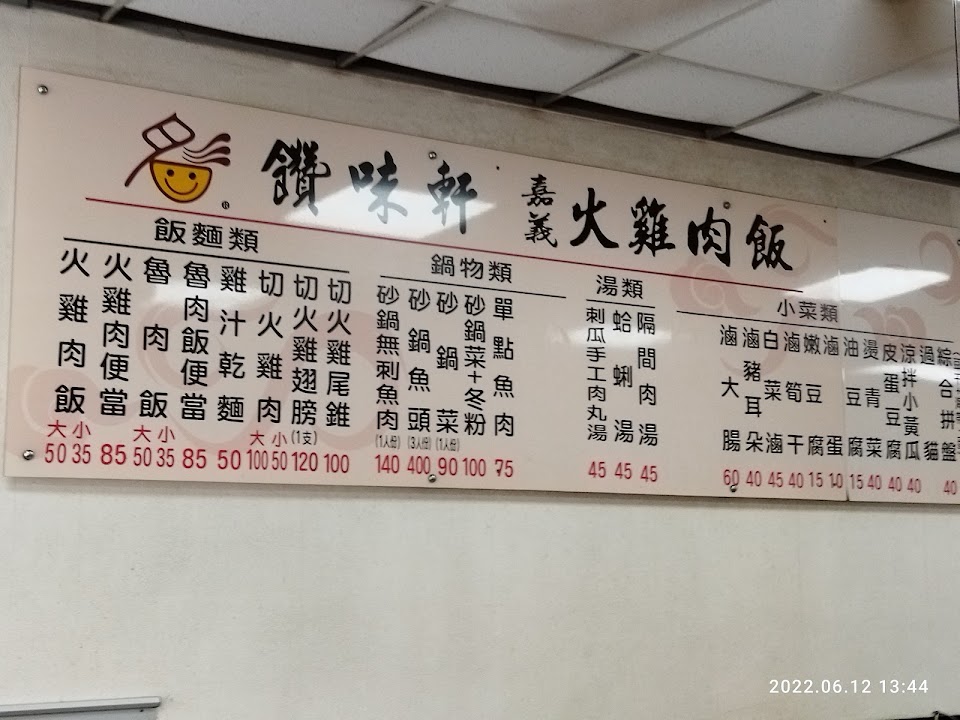 鑽味軒 嘉義 火雞肉飯
飯麵類
火雞肉飯 大50 小35
火雞肉便當 85
魯肉飯 大50 小35
魯肉飯便當 85
雞汁乾麵 50
切火雞肉 大100 小50
切火雞翅膀 (1支) 120
切火雞尾錐 100
鍋物類
砂鍋無刺魚肉 (1人份) 140
砂鍋魚頭 (3人份) 400
砂鍋菜 (1人份) 90
砂鍋菜+冬粉 100
單點魚肉 75
湯類
刺瓜手工肉丸湯 45
蛤蜊湯 45
隔間肉湯 45
小菜類
滷大腸 60
滷豬耳朵 40
白菜滷 45
滷筍干 40
嫩豆腐 15
滷蛋 10
油豆腐 15
燙青菜 40
皮蛋豆腐 40
涼拌小黃瓜 40
過貓
綜合拼盤 40
2022.06.12 13:44